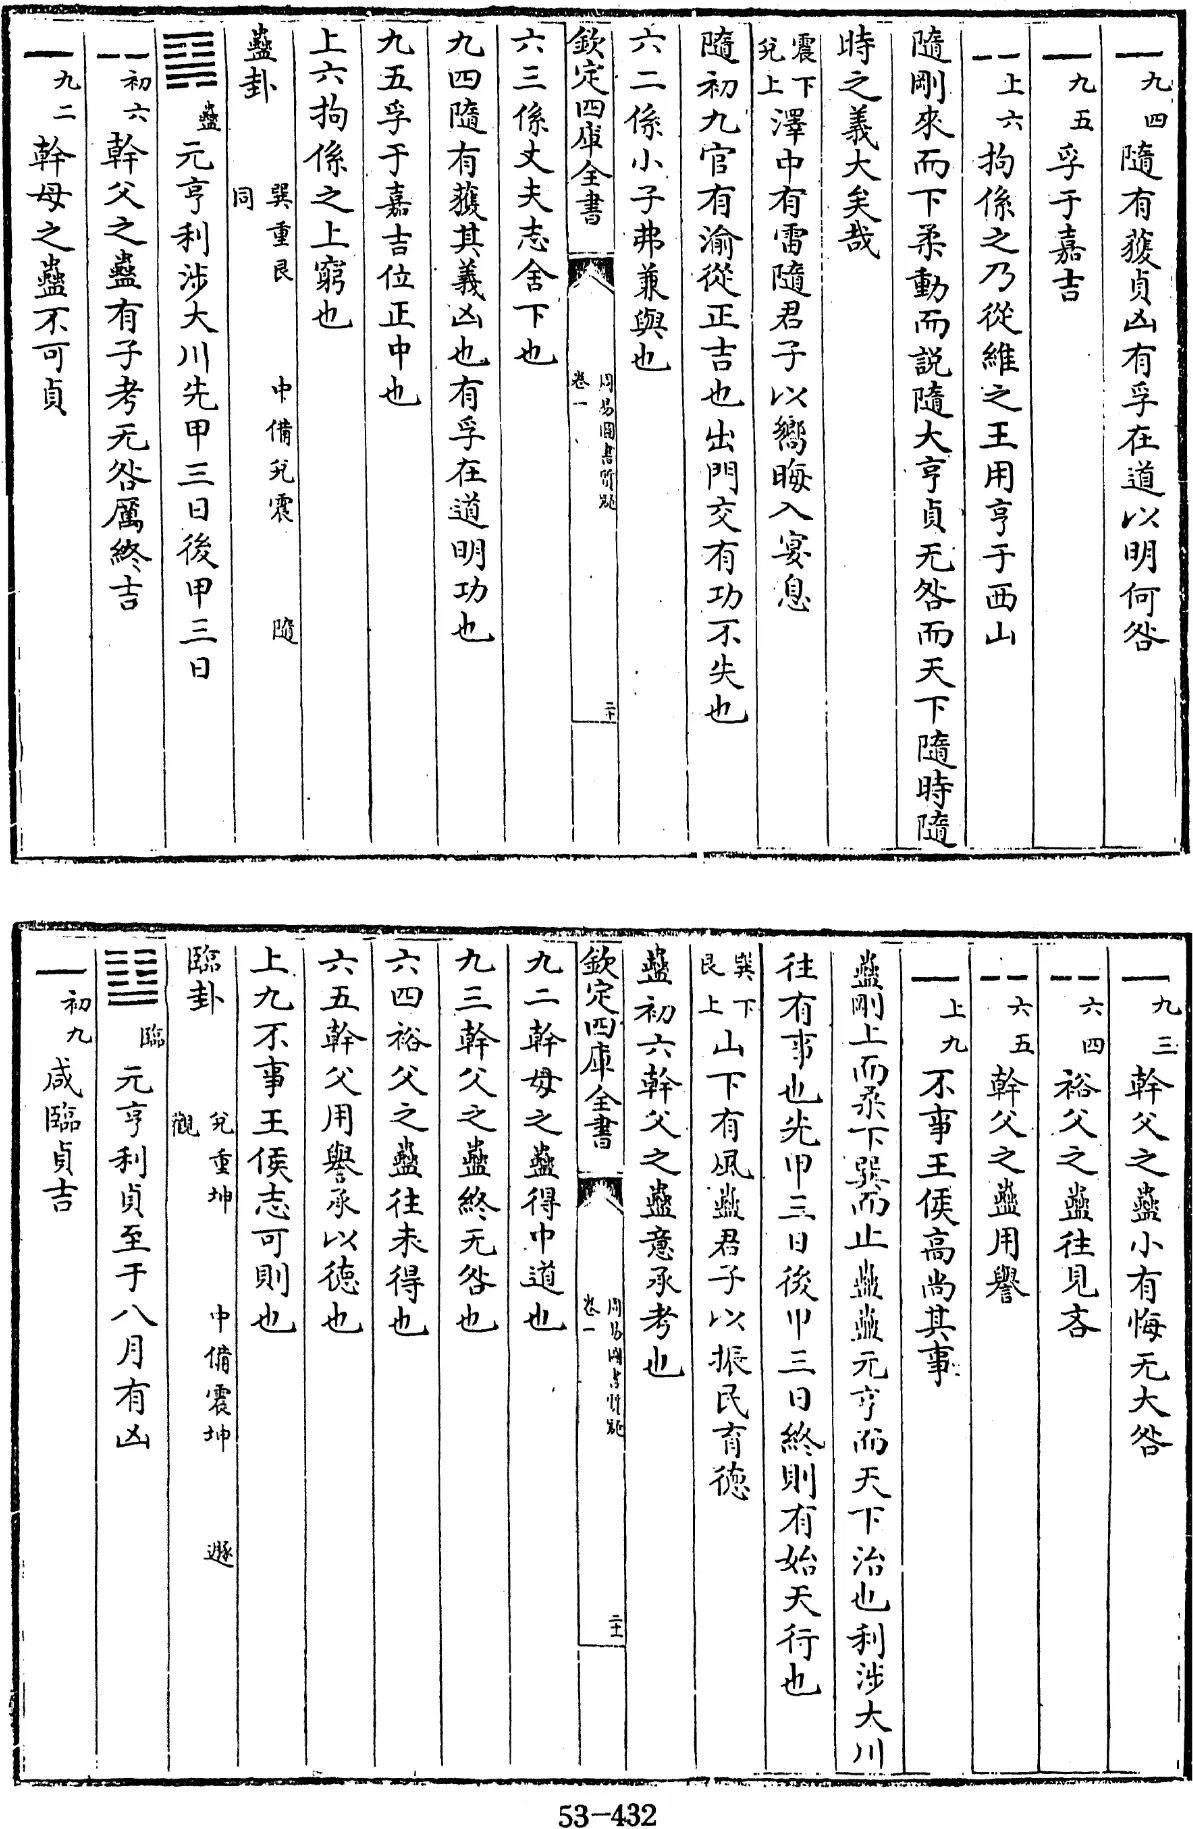 九四 隨有獲貞凶有孚在道以明何咎
九五 孚于嘉吉
上六 拘係之乃從維之王用亨于西山
隨剛來而下柔動而説隨大亨貞无咎而天下隨時隨
時之義大矣哉
震下兌上 澤中有雷隨君子以嚮晦入宴息
隨初九官有渝從正吉也出門交有功不失也
六二係小子弗兼與也
欽定四庫全書 周易圖書質疑 卷一 二十
六三係丈夫志舍下也
九四隨有獲其義凶也有孚在道明功也
九五孚于嘉吉位正中也
上六拘係之上窮也
蠱卦 巽重艮 中備兌震 隨
同
蠱 元亨利涉大川先甲三日後甲三日
初六 幹父之蠱有子考无咎厲終吉
九二 幹母之蠱不可貞
九三 幹父之蠱小有悔无大咎
六四 裕父之蠱往見吝
六五 幹父之蠱用譽
上九 不事王侯高尚其事
蠱剛上而柔下巽而止蠱蠱元亨而天下治也利涉大川
往有事也先甲三日後甲三日終則有始天行也
巽下艮上 山下有風蠱君子以振民育德
蠱初六幹父之蠱意承考也
欽定四庫全書 周易圖書質疑 卷一 二十一
九二幹母之蠱得中道也
九三幹父之蠱終无咎也
六四裕父之蠱往未得也
六五幹父用譽承以德也
上九不事王侯志可則也
臨卦 兌重坤 中備震坤 遯
觀
臨 元亨利貞至于八月有凶
初九 咸臨貞吉
53-432